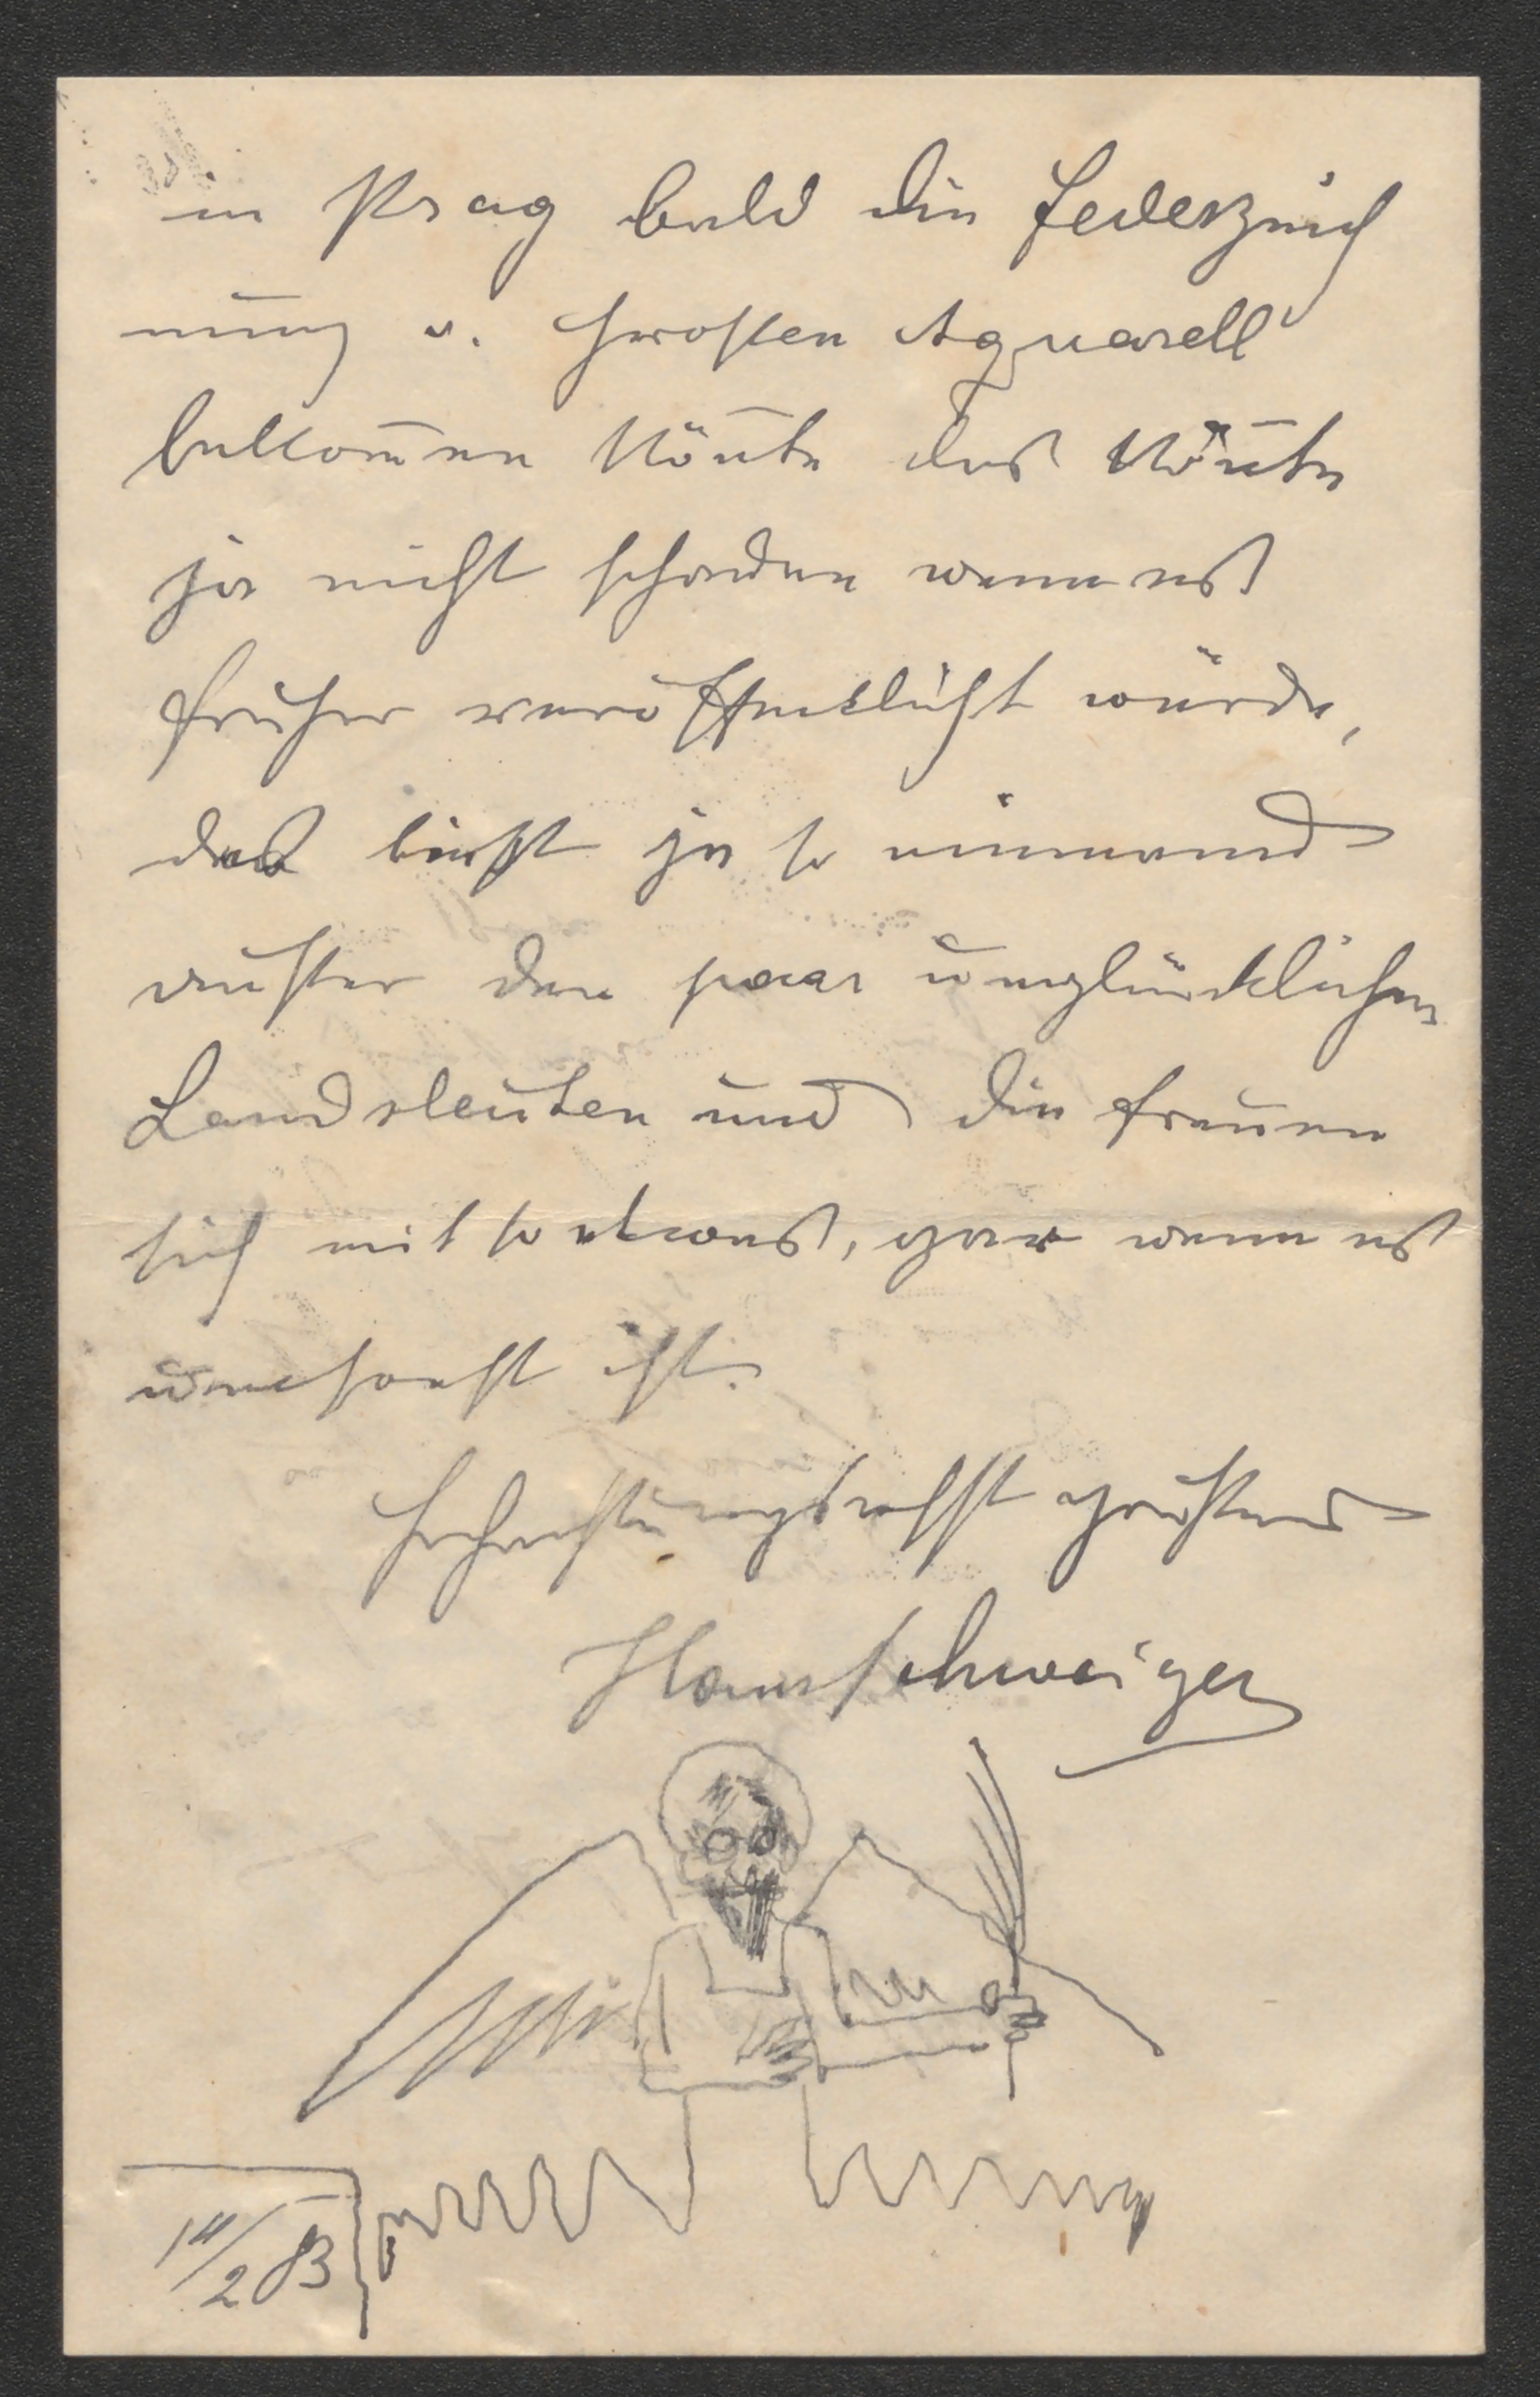 in Prag bald die Federzeich
nung v. grossen Aquarell
bekom̄en kön̄te das kön̄te
ja nicht schaden wenn es
früher veröffentlicht würde,
das liest ja so niemand
ausser den paar unglücklichen
Landsleuten und die freuen
sich mit so etwas, gar wenn es
umsonst ist.
Hochachtungsvollst grüssend
Hans Schwaiger
14/2 83